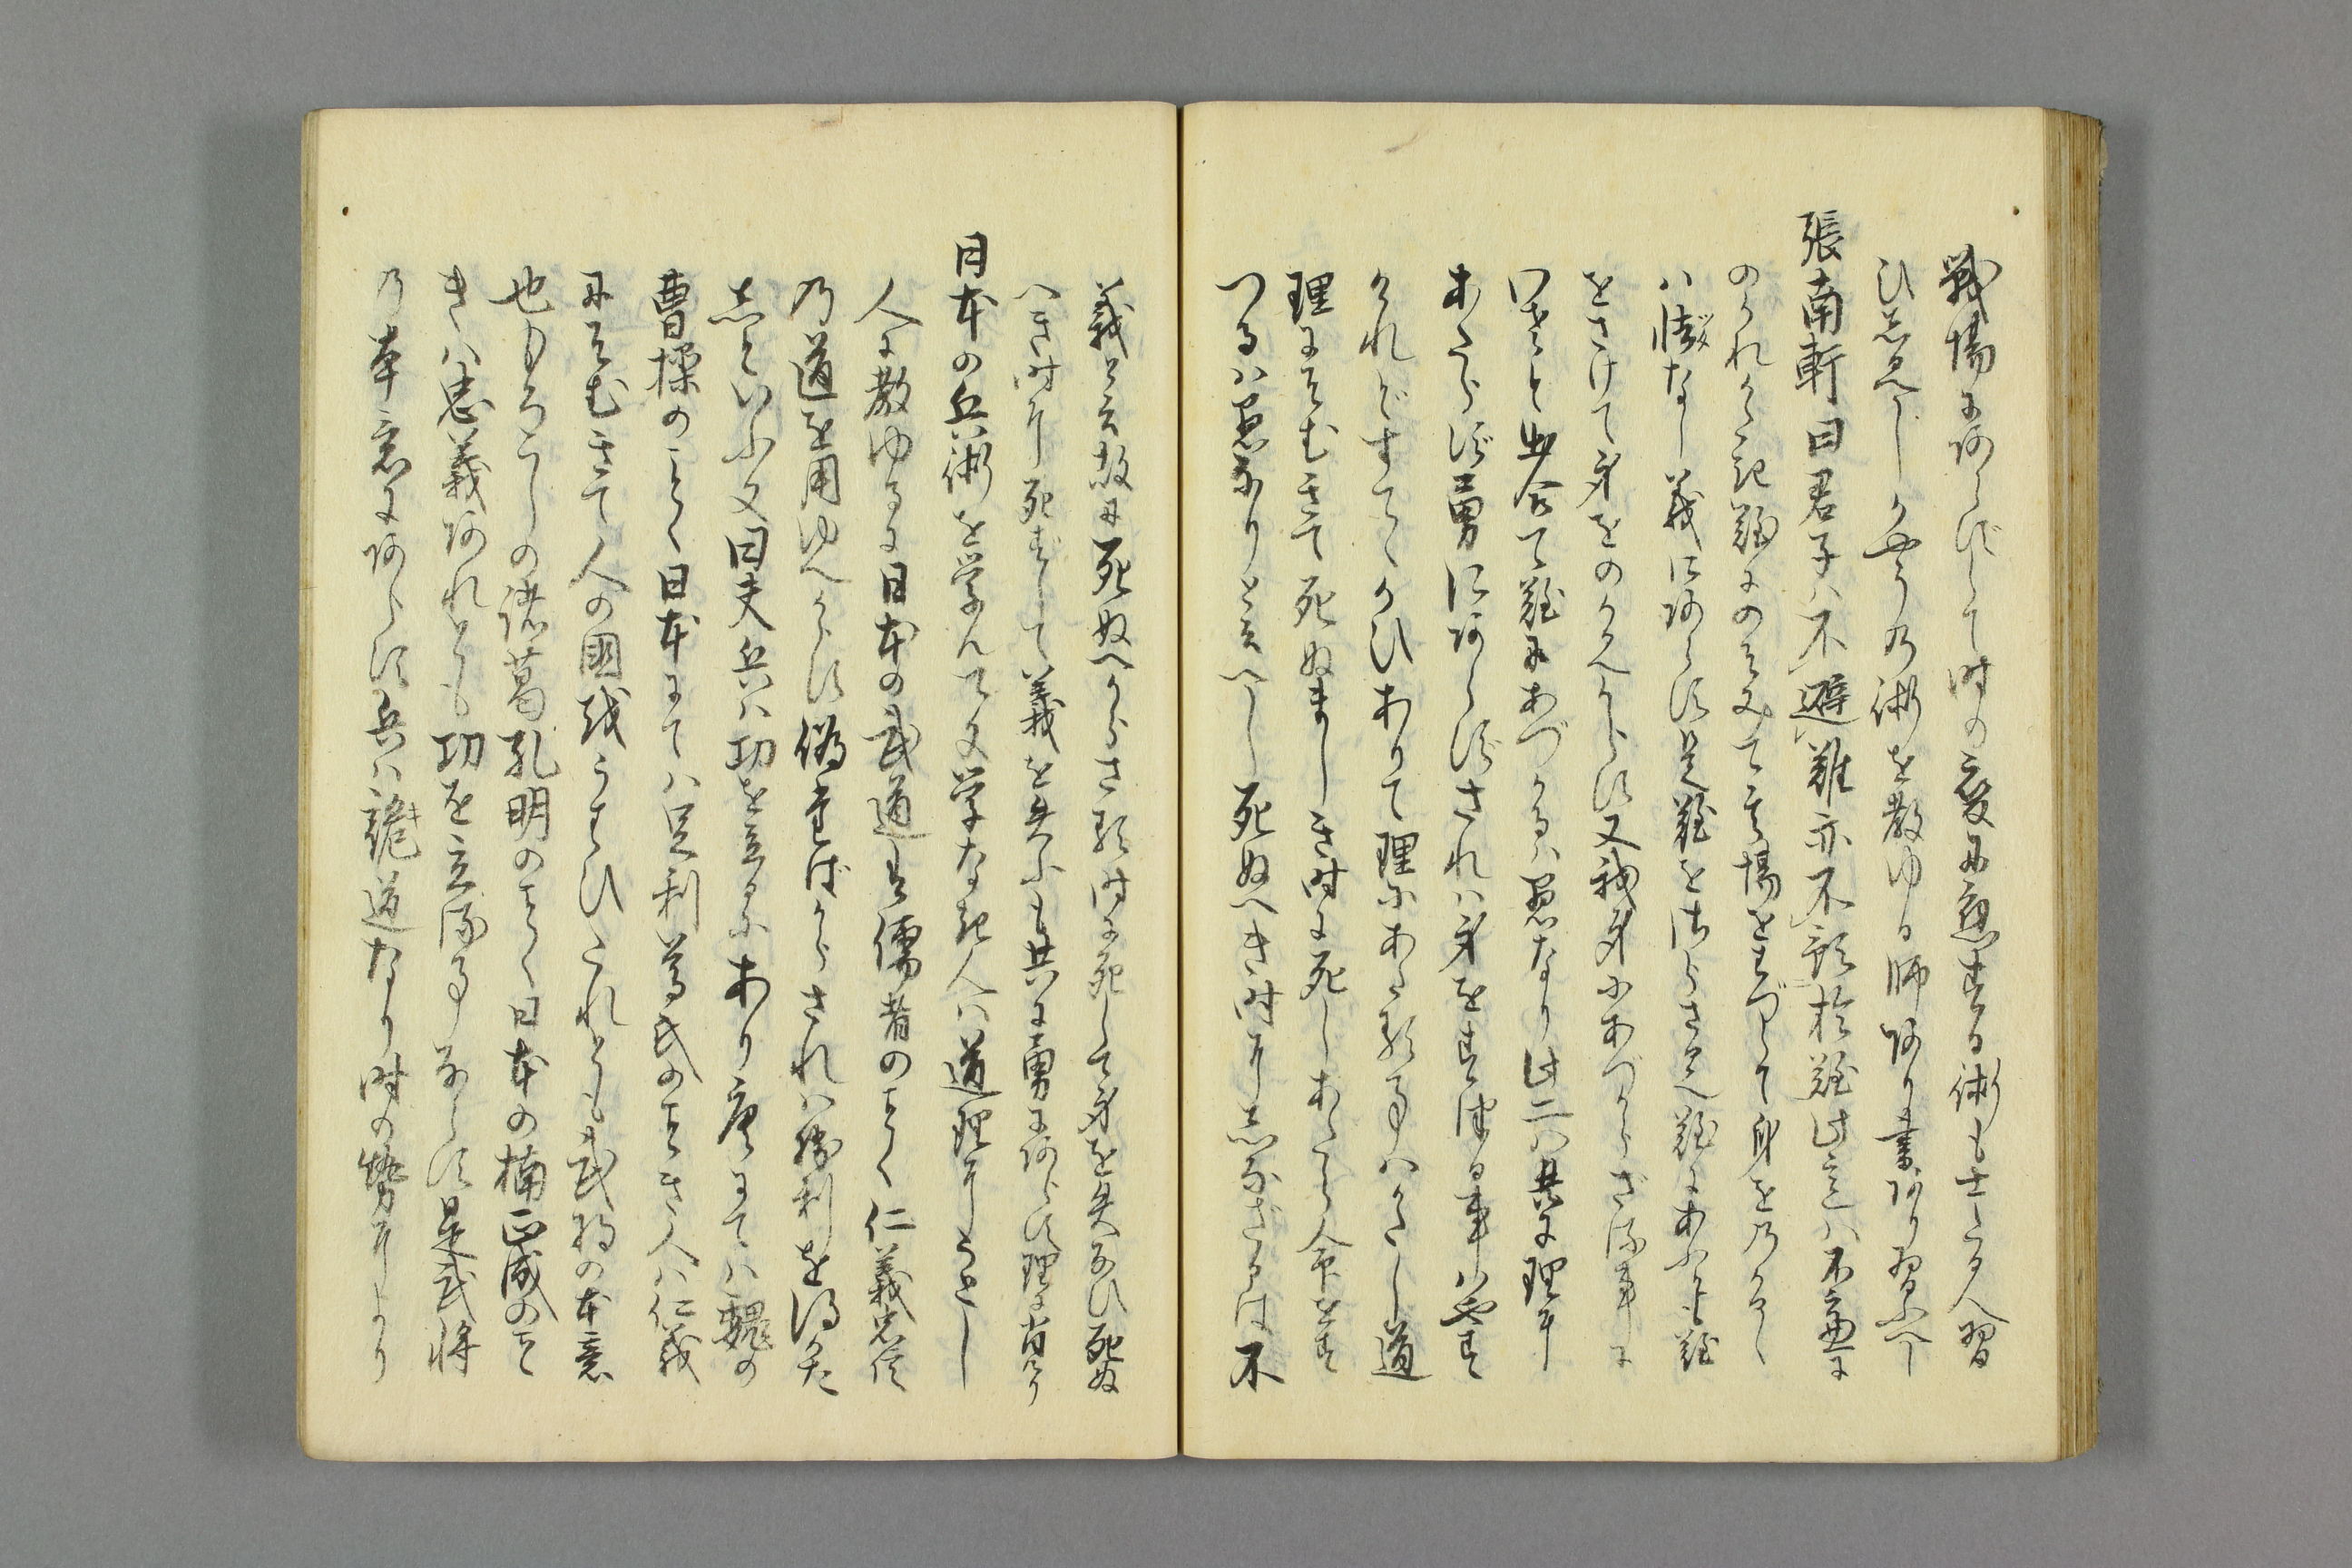 戦場に阿らずして時の変に応する術も士たる人習
ひ知べしかやうの術を教ゆる師阿り書阿り習ふへし
張南軒曰君子ハ不避難亦不	於難此言ハ不意に
のかれかたき難にのそみて其場をはづして身をのかるゝ
ハ臆なし義に阿らす是難を	さけへ難にあふとも難
をさけて身をのかるへからす又我身にあづからざる事に
わさと出合て難にあづかるハ愚なり此二ハ共に理に
あたらず勇に阿らずされハ身をすつる事ハやす
けれどすてゝかひありて理にあたる事ハかたし道
理にそむきて死ぬましき時に死しあたら命をす
つるハ愚なりと云へし死ぬへき時に志なざるは不
義と云故に死ぬへからさる時に死して身を失なひ死ぬ
へき時に死せずして義を失ふも共に勇に阿らす理に背けり
日本の兵術を学んて文学なき人ハ道理にうとし
人に教ゆるに日本の武道は儒者のことく仁義忠信
の道を用ゆへからす偽	ばからされハ勝利を得かた
しといふ又曰夫兵ハ功を立るにあり唐にてハ魏の
曹操のことく日本にてハ足利尊氏のことき人ハ仁義
にそむきて人の国をうはひたれとも武将の本意
也もろこしの諸葛孔明のことく日本の楠正成のこと
きハ忠義阿れとも功を立る事ならす是武将
の本意に阿らす兵ハ詭道なり時の勢により